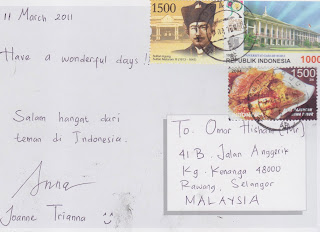 11 March 2011
Have a wonderful days !!
Salam hangat dari
teman di Indonesia.
Anna
Joanne Trianna
1500
REPUBLIK INDONESIA
1000
1500
To: Omar Hisham (Mr)
41 B. Jalan Anggerik
Kg. Kenanga 48000
Rawang, Selangor
MALAYSIA